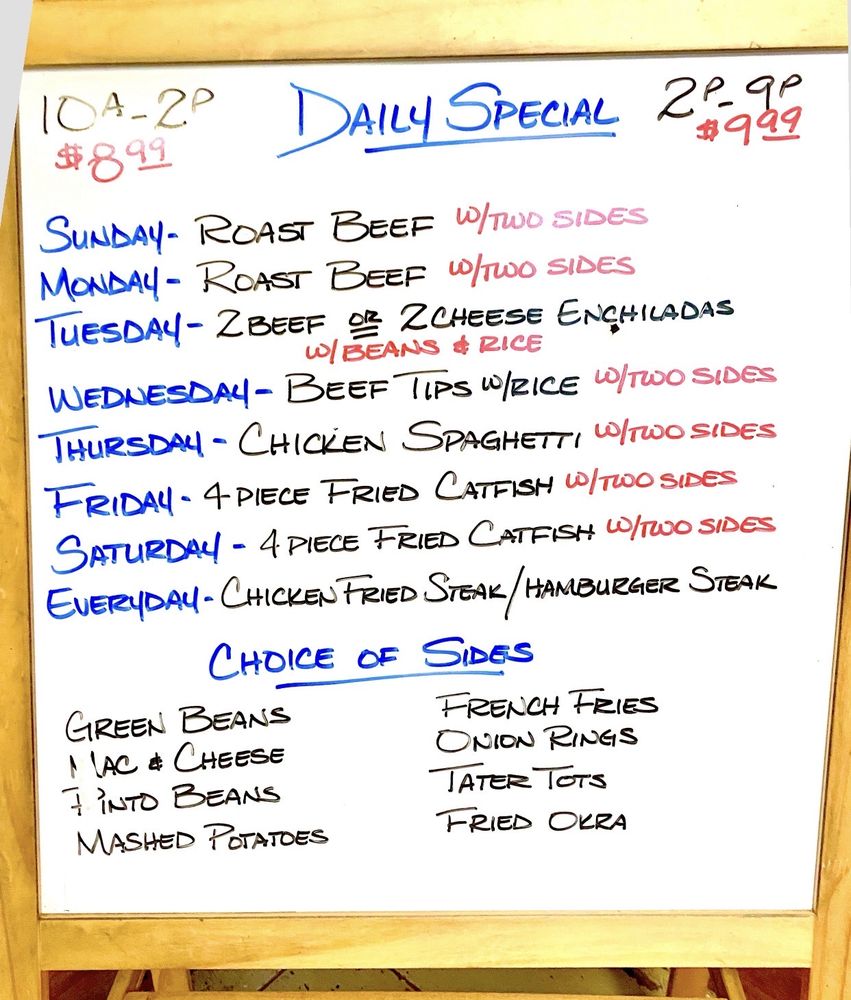 10A-2P DAILY SPECIAL 2P-9P
$8.99 $9.99
SUNDAY- ROAST BEEF W/TWO SIDES
MONDAY- ROAST BEEF W/TWO SIDES
TUESDAY- 2 BEEF OR 2 CHEESE ENCHILADAS
W/BEANS & RICE
WEDNESDAY- BEEF TIPS W/RICE W/TWO SIDES
THURSDAY- CHICKEN SPAGHETTI W/TWO SIDES
FRIDAY- 4 PIECE FRIED CATFISH W/TWO SIDES
SATURDAY- 4 PIECE FRIED CATFISH W/TWO SIDES
EVERYDAY- CHICKEN FRIED STEAK/HAMBURGER STEAK
CHOICE OF SIDES
GREEN BEANS
MAC & CHEESE
PINTO BEANS
MASHED POTATOES
FRENCH FRIES
ONION RINGS
TATER TOTS
FRIED OKRA